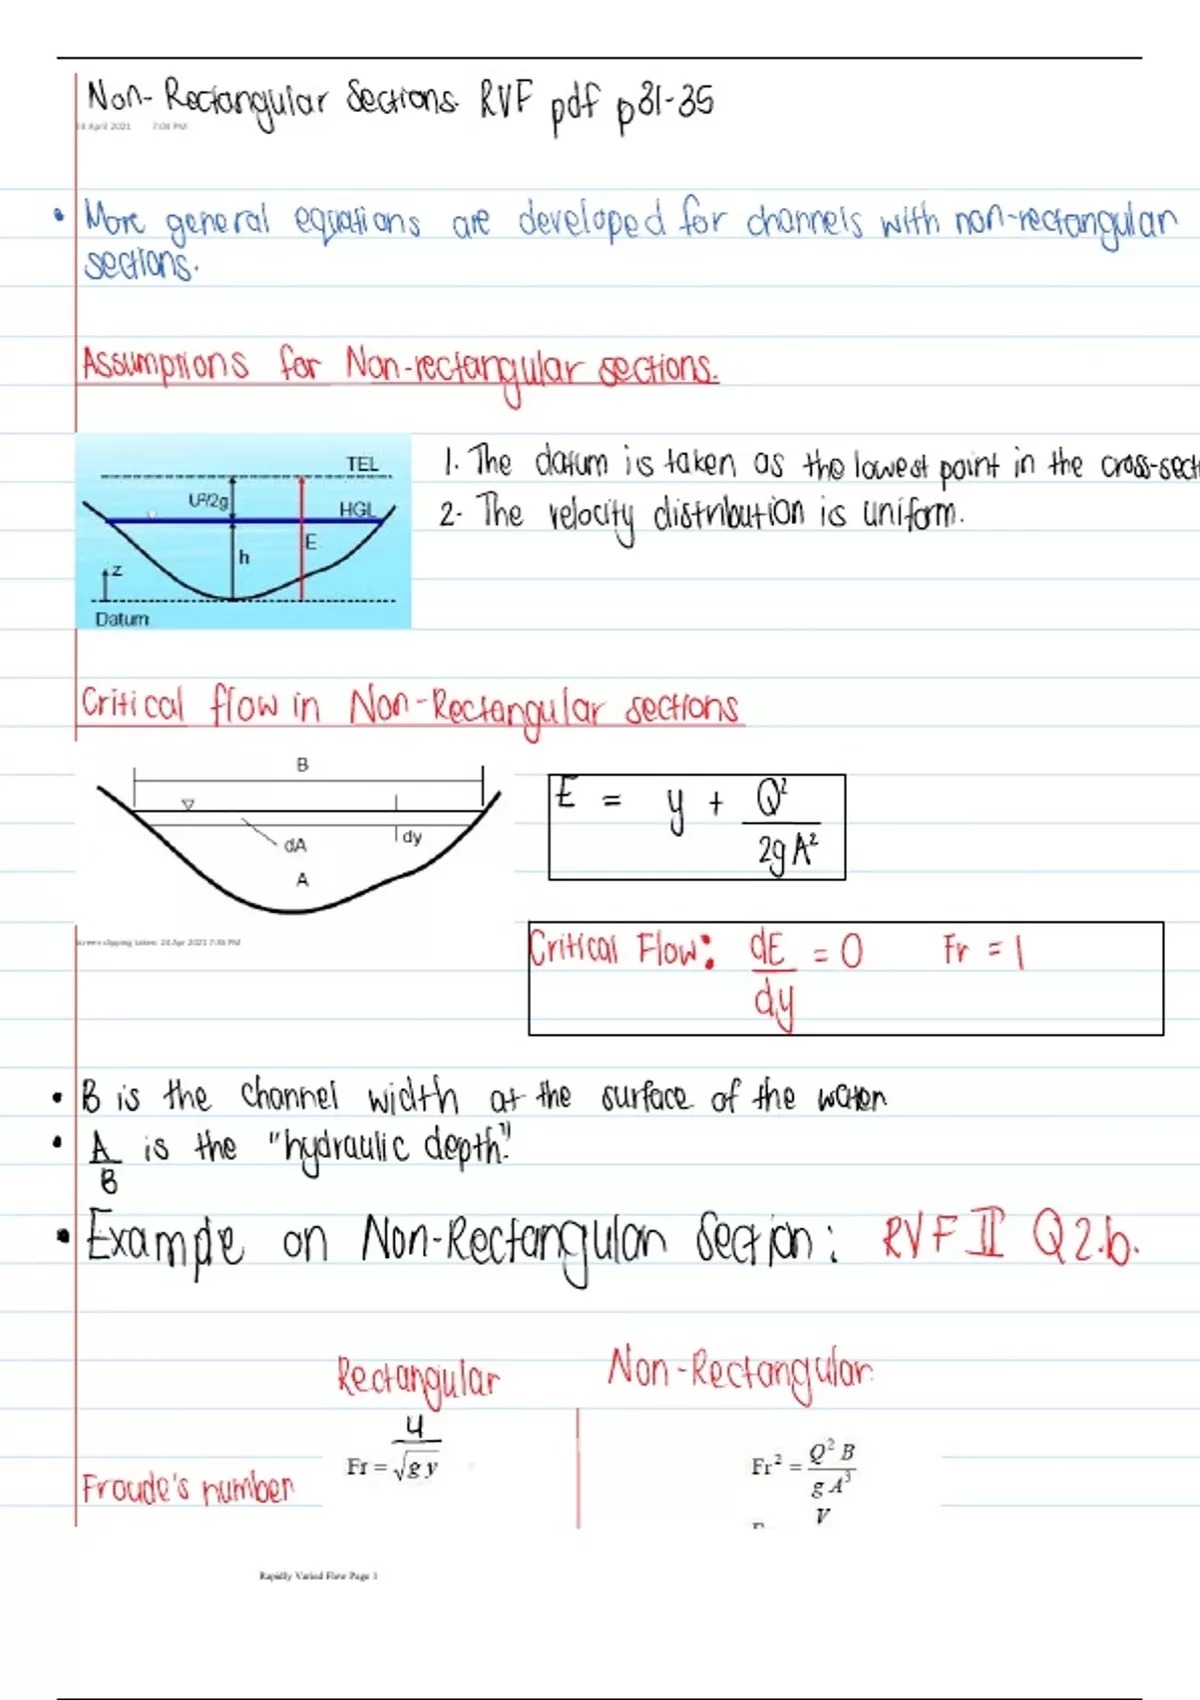 Non-Rectangular Sections. RVF pdf p31-35
14 April 2021 7:04 PM
• More general equations are developed for channels with non-rectangular
sections.
Assumptions for Non-rectangular sections.
TEL
U²/2g
HGL
E
h
z
Datum
1. The datum is taken as the lowest point in the cross-sect
2. The velocity distribution is uniform.
Critical flow in Non-Rectangular sections
B
dA
dy
A
E = y + Q²/2gA²
Screen clipping taken: 24 Apr 2021 7:36 PM
Critical Flow: dE/dy = 0 Fr = 1
• B is the channel width at the surface of the water.
• A/B is the "hydraulic depth".
• Example on Non-Rectangular Section: RVF II Q2.b.
Rectangular Non-Rectangular
Froude's number Fr = u/√gy Fr² = Q²B/gA³
V
Rapidly Varied Flow Page 1